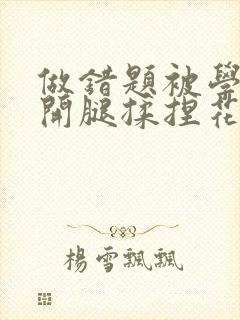 做錯題被學
開腿揉捏花
楊雪飄飄